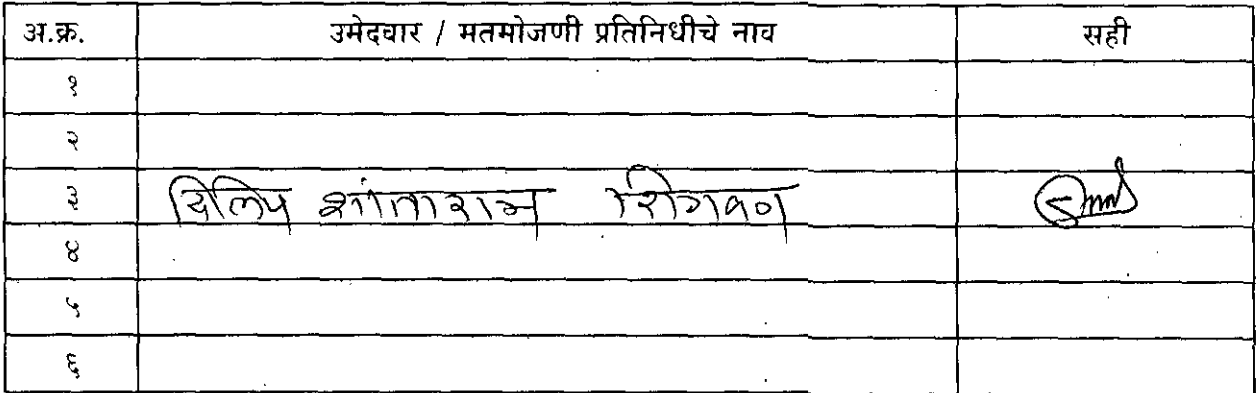 अ.क्र. उमेदवार / मतमोजणी प्रतिनिधीचे नाव सही
१
२
३ दिलिप शांताराम शिगवण
४
५
६